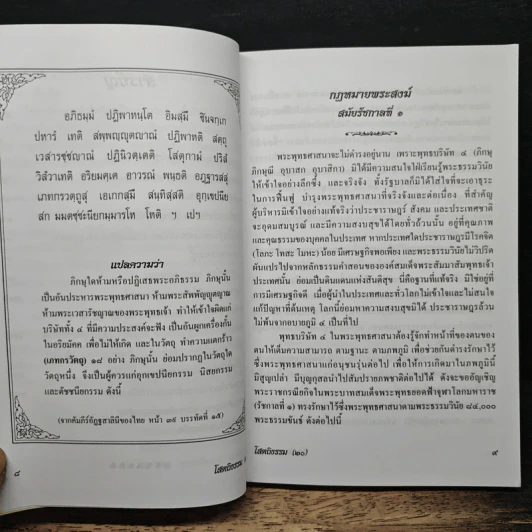 อภิธมฺมํ ปฏิพาหนฺโต อิมสฺมึ ชินจกฺเก
ปหารํ เทติ สพฺพญฺญุตญาณํ ปฏิพาหติ สตฺถุ
เวสารชฺชญาณํ ปฏินิวตฺเตติ โสตุกามํ ปริสํ
วิสํวาเทติ อริยมคฺเค อาวรณํ พนฺธติ อฏฺฐารสสุ
เภทกรวตฺถูสุ เอเกกสฺมึ สนฺทิสฺสติ อุกฺเขปนีย
แปลความว่า
ภิกษุใดห้ามหรือปฏิเสธพระอภิธรรม ภิกษุนั้น
เป็นอันประหารพระพุทธศาสนา ห้ามพระสัพพัญญุตญาณ
ห้ามพระเวสารัชญาณของพระพุทธเจ้า ทำให้เข้าใจผิดแก่
บริษัททั้ง ๔ ที่มีความประสงค์จะฟัง เป็นอันผูกเครื่องกั้น
ในอริยมัคค เพื่อไม่ให้เกิด และในวัตถุ ทำความแตกร้าว
(เภทกรวัตถุ) ๑๘ อย่าง ภิกษุนั้น ย่อมปรากฏในวัตถุใด
วัตถุหนึ่ง จึงเป็นผู้ควรแก่อุกเขปนียกรรม นิสยกรรม
และตัชชนียกรรม ดังนี้
(จากคัมภีร์อัฏฐสาลินีของไทย หน้า ๓๙ บรรทัดที่ ๑๕)
๘
โสตถิธรรม
กฎหมายพระสงฆ์
สมัยรัชกาลที่ ๑
พระพุทธศาสนาจะไม่ดำรงอยู่นาน เพราะพุทธบริษัท ๔ (ภิกษุ
ภิกษุณี อุบาสก อุบาสิกา) มิได้มีความสนใจใฝ่เรียนรู้พระธรรมวินัย
ให้เข้าใจอย่างลึกซึ้ง และจริงจัง ทั้งรัฐบาลก็มิได้ใส่ใจที่จะเอาธุระ
ในการฟื้นฟู บำรุงพระพุทธศาสนาที่จริงจังและต่อเนื่อง ที่สำคัญ
ผู้บริหารมิเข้าใจอย่างแท้จริงว่าประชาราษฎร์ สังคม และประเทศชาติ
จะอุดมสมบูรณ์ และมีความสงบสุขได้โดยทั่วถ้วนนั้น อยู่ที่คุณภาพ
และคุณธรรมของบุคคลในประเทศ หากประเทศใดประชาราษฎร์มีโรคจิต
(โลภะ โทสะ โมหะ) น้อย มีเศรษฐกิจพอเพียง และพระธรรมวินัยไม่วิปริต
ผันแปรไปจากหลักธรรมคำสอนขององค์สมเด็จพระสัมมาสัมพุทธเจ้า
ประเทศนั้น ย่อมเป็นดินแดนแห่งสันติสุข นี่คือฐานที่แท้จริง มิใช่อยู่ที่
การมีเศรษฐกิจดี เมื่อผู้นำในประเทศและทั่วโลกไม่เข้าใจและไม่สนใจ
แก้ปัญหาที่ต้นเหตุ โลกนี้ย่อมหาความสงบสุขมิได้ ประชาราษฎรล้วน
ไม่พ้นจากอบายภูมิ ๔ เป็นที่ไป
พุทธบริษัท ๔ ในพระพุทธศาสนาต้องรู้จักทำหน้าที่ของตนของ
ตนให้เต็มความสามารถ ตามฐานะ ตามภพภูมิ เพื่อช่วยกันดำรงรักษาไว้
ซึ่งพระพุทธศาสนาแก่อนุชนรุ่นต่อไป เพื่อให้การเกิดมาในภพภูมินี้
มิสูญเปล่า มีบุญกุศลนำไปสัมปรายภพชาติต่อไปได้ ดังจะขออัญเชิญ
พระราชกรณียกิจในพระบาทสมเด็จพระพุทธยอดฟ้าจุฬาโลกมหาราช
(รัชกาลที่ ๑) ทรงรักษาไว้ซึ่งพระพุทธศาสนาตามพระธรรมวินัย ๘๔,๐๐๐
พระธรรมขันธ์ ดังต่อไปนี้
โสตถิธรรม (๒๐)
๙